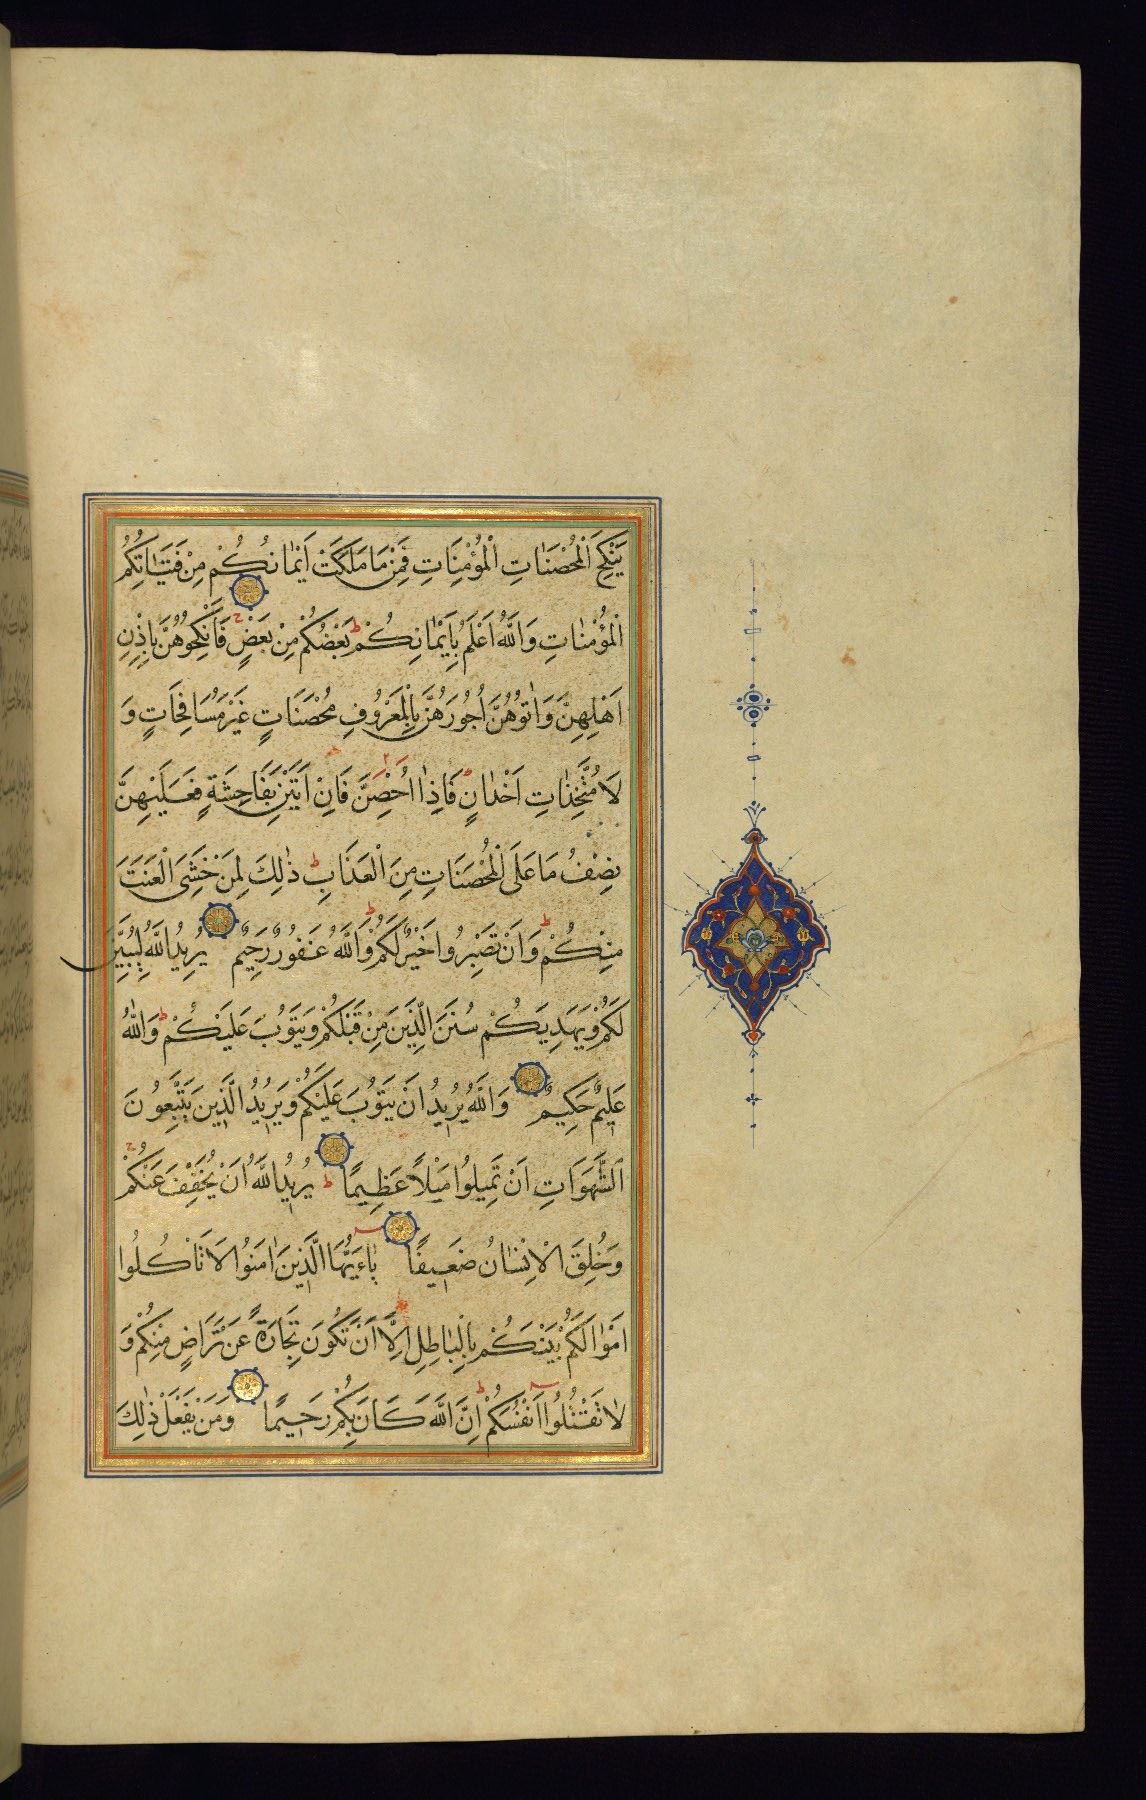 يَنْكِحَ الْمُحْصَنَاتِ الْمُؤْمِنَاتِ فَمِنْ مَا مَلَكَتْ أَيْمَانُكُمْ مِنْ فَتَيَاتِكُمُ
الْمُؤْمِنَاتِ وَاللّٰهُ اَعْلَمُ بِاِيمَانِكُمْ بَعْضُكُمْ مِنْ بَعْضٍ فَانْكِحُوهُنَّ بِاِذْنِ
اَهْلِهِنَّ وَاٰتُوهُنَّ اُجُورَهُنَّ بِالْمَعْرُوفِ مُحْصَنَاتٍ غَيْرَ مُسَافِحَاتٍ وَ
لَا مُتَّخِذَاتِ اَخْدَانٍ فَاِذَا اُحْصِنَّ فَاِنْ اَتَيْنَ بِفَاحِشَةٍ فَعَلَيْهِنَّ
نِصْفُ مَا عَلَى الْمُحْصَنَاتِ مِنَ الْعَذَابِ ذٰلِكَ لِمَنْ خَشِيَ الْعَنَتَ
مِنْكُمْ وَاَنْ تَصْبِرُوا خَيْرٌ لَكُمْ وَاللّٰهُ غَفُورٌ رَحِيمٌ يُرِيدُ اللّٰهُ لِيُبَيِّنَ
لَكُمْ وَيَهْدِيَكُمْ سُنَنَ الَّذِينَ مِنْ قَبْلِكُمْ وَيَتُوبَ عَلَيْكُمْ وَاللّٰهُ
عَلِيمٌ حَكِيمٌ وَاللّٰهُ يُرِيدُ اَنْ يَتُوبَ عَلَيْكُمْ وَيُرِيدُ الَّذِينَ يَتَّبِعُونَ
الشَّهَوَاتِ اَنْ تَمِيلُوا مَيْلًا عَظِيمًا يُرِيدُ اللّٰهُ اَنْ يُخَفِّفَ عَنْكُمْ
وَخُلِقَ الْاِنْسَانُ ضَعِيفًا يَاءَيُّهَا الَّذِينَ اٰمَنُوا لَا تَاْكُلُوا
اَمْوَالَكُمْ بَيْنَكُمْ بِالْبَاطِلِ اِلَّا اَنْ تَكُونَ تِجَارَةً عَنْ تَرَاضٍ مِنْكُمْ وَ
لَا تَقْتُلُوا اَنْفُسَكُمْ اِنَّ اللّٰهَ كَانَ بِكُمْ رَحِيمًا وَمَنْ يَفْعَلْ ذٰلِكَ